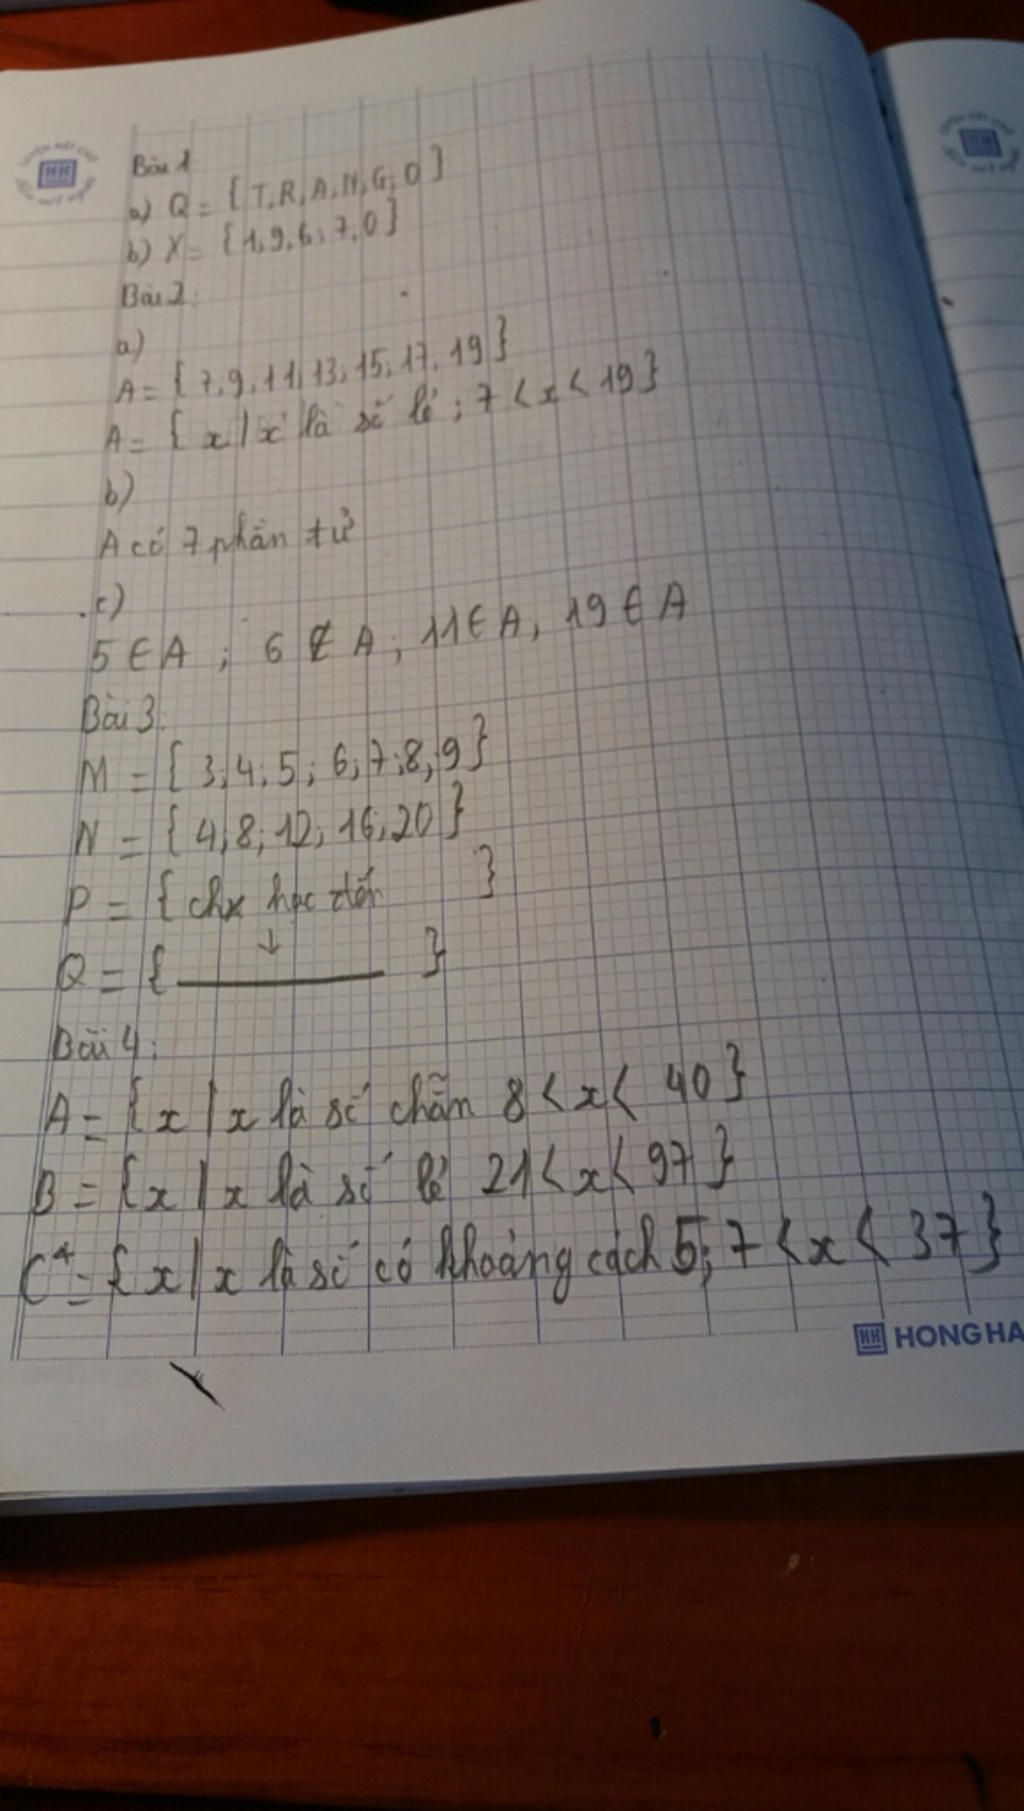 Bài 1
a) Q = { T, R, A, N, G, O }
b) X = { 1, 9, 6, 7, 0 }
Bài 2:
a)
A = { 7, 9, 11, 13, 15, 17, 19 }
A = { x / x là số lẻ ; 7 < x < 19 }
b)
A có 7 phần tử
c)
5 ∈ A ; 6 ∉ A ; 11 ∈ A , 19 ∈ A
Bài 3.
M = { 3; 4; 5; 6; 7; 8; 9 }
N = { 4; 8; 12; 16; 20 }
P = { chx học đến }
↓
Q = { }
Bài 4:
A = { x / x là số chẵn 8 < x < 40 }
B = { x / x là số lẻ 21 < x < 97 }
C = { x / x là số có khoảng cách 5; 7 < x < 37 }
HH HONG HA